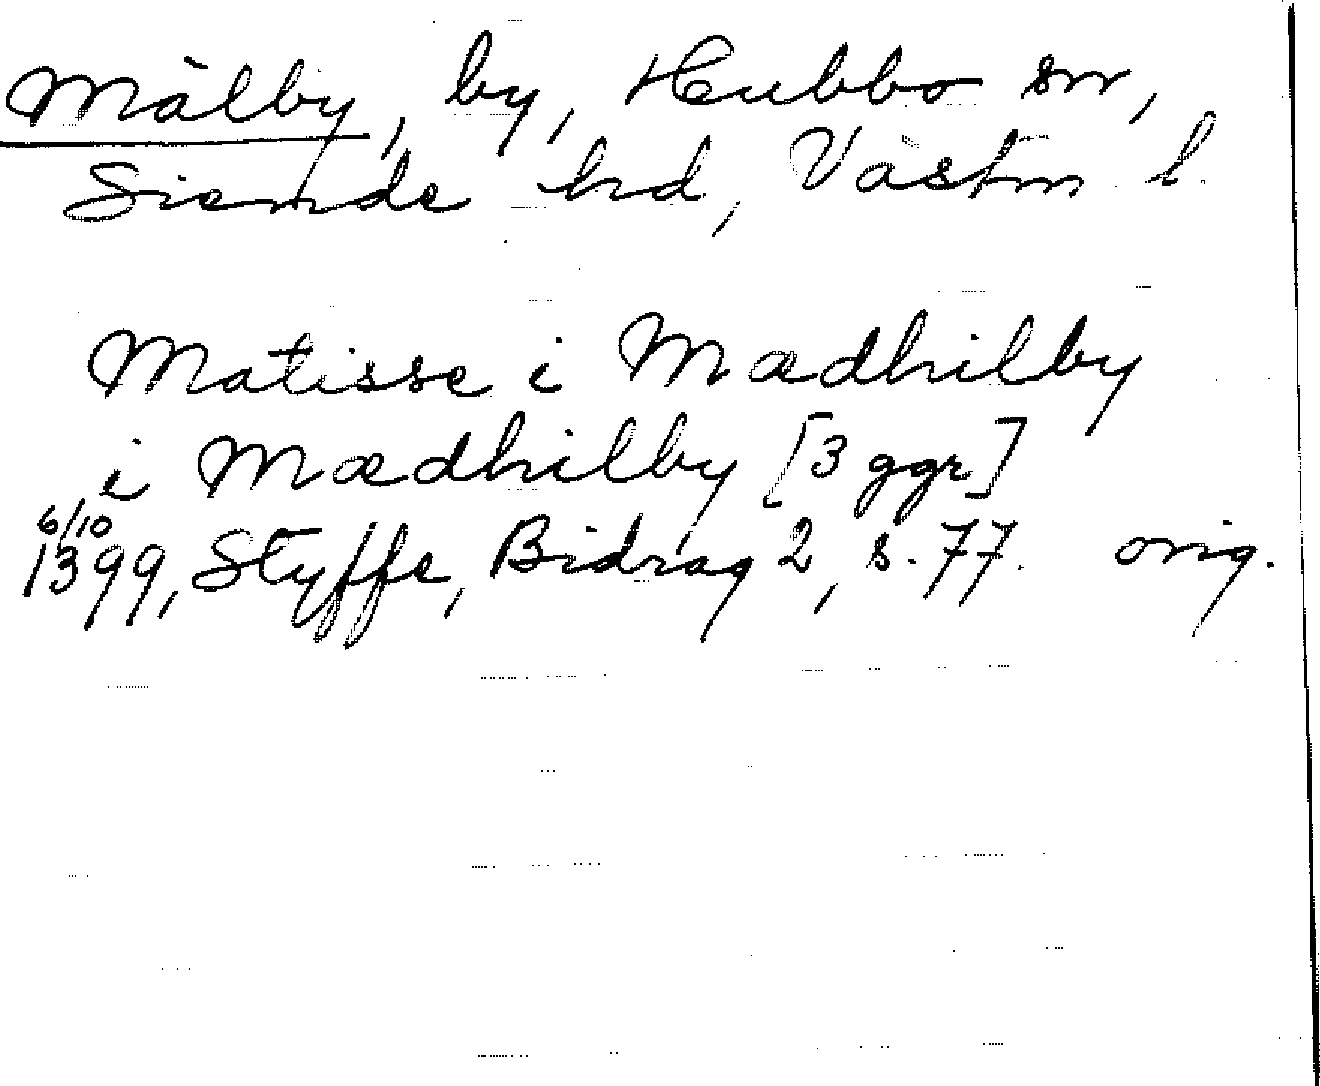 Mälby, by, Hubbo sn,
Siende hd, Västm l.
Matisse i Mædhilby
i Mædhilby [3 ggr]
6/10
1399, Styffe, Bidrag 2, s. 77. orig.